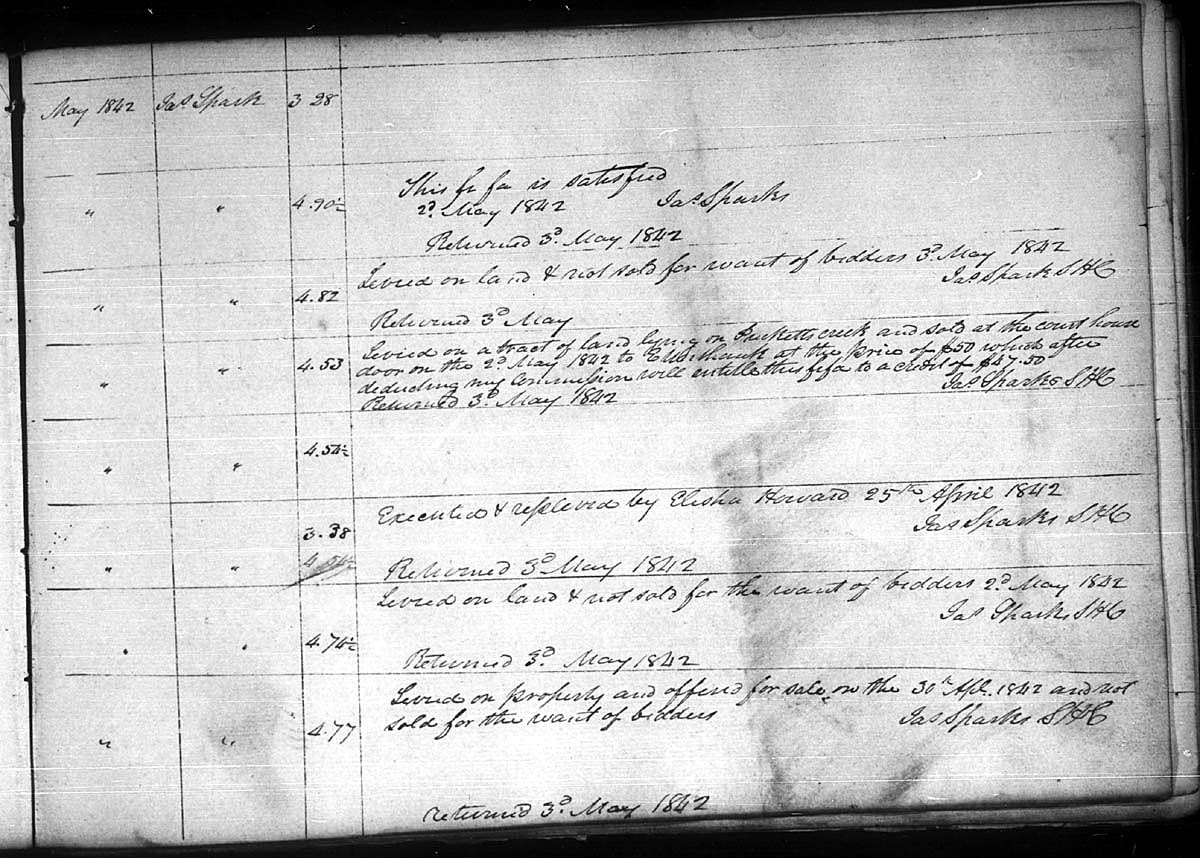 May 1842 Jas. Spark 3 28
This fi fa is satisfied
" " 4.90½ 2d. May 1842 Jas. Sparks
Returned 3d. May 1842
Levied on land & not sold for want of bidders 3d. May 1842
" " 4.82 Jas. Sparks SHC
Returned 3d May
Levied on a tract of land lying on Pucketts creek and sold at the court house
" " 4.53 door on the 2d. May 1842 to at the price of $50 which after
deducting my Commission will entitle this fi fa to a credit of $47.50
Returned 3d. May 1842 Jas. Sparks SHC
" " 4.54½
Executed & replevied by Elisha Howard 25th April 1842
3.38 Jas Sparks SHC
" " 4 54½ Returned 3d May 1842
Levied on land & not sold for the want of bidders 2d. May 1842
" " 4.74½ Jas Sparks SHC
Returned 3d. May 1842
Levied on property and offered for sale on the 30th Apl. 1842 and not
" " 4.77 sold for the want of bidders Jas Sparks SHC
returned 3d. May 1842